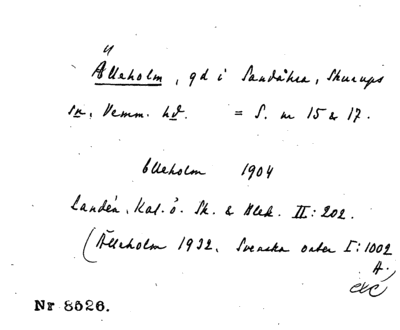 Älleholm, gd i Sandåkra, Skurups
sn, Vemm. hd. = S. nr 15 & 17.
Elleholm 1904
Landén, Kal. ö. Sk. & Blek. II: 202.
(Älleholm 1932. Svenska orter I: 1002
Nr 8526.